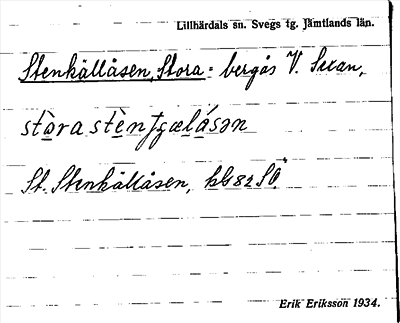 Lillhärdals sn. Svegs tg. Jämtlands län.
Stenkällåsen, Stora = bergås V. Sexan,
stòra stènʃɡælǻsən
St. Stenkällåsen, kb 82 SO.
Erik Eriksson 1934.